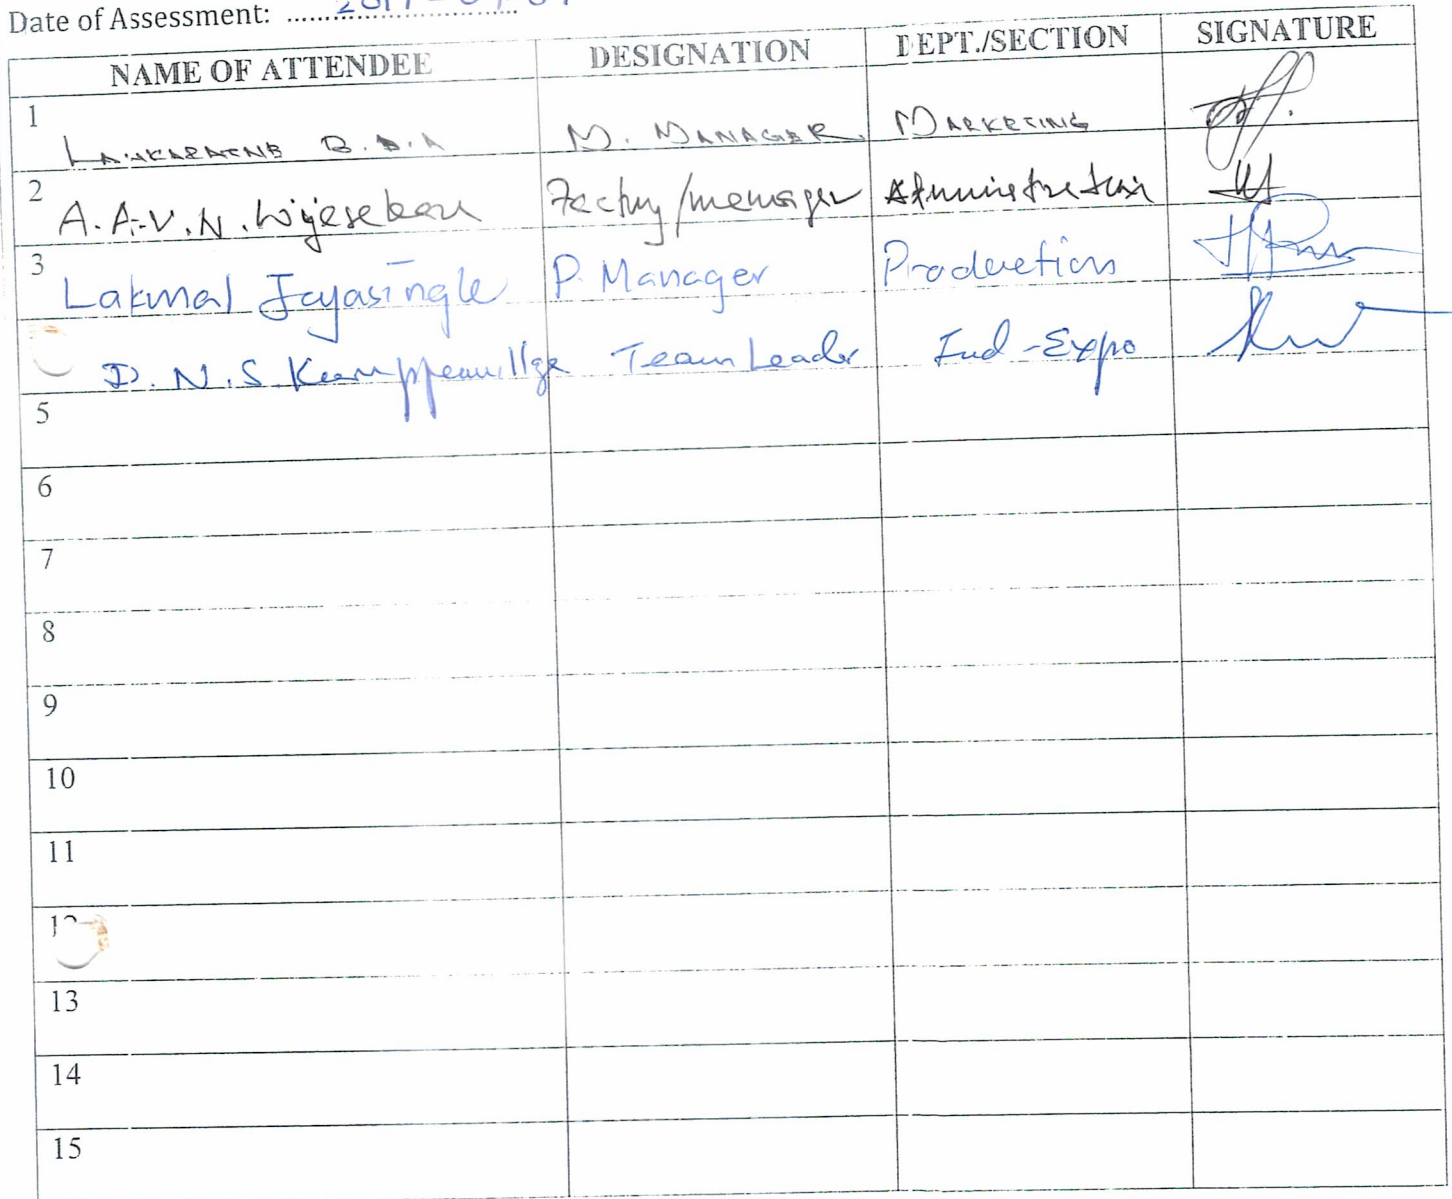 Date of Assessment:
NAME OF ATTENDEE DESIGNATION DEPT./SECTION SIGNATURE
1 M. MANAGER MARKETING
2 A.A.V.N. Factory/manager Administration
3 Lakmal Jayasingle P. Manager Production
D.N.S. Team Leader Ind-Expo
5
6
7
8
9
10
11
13
14
15